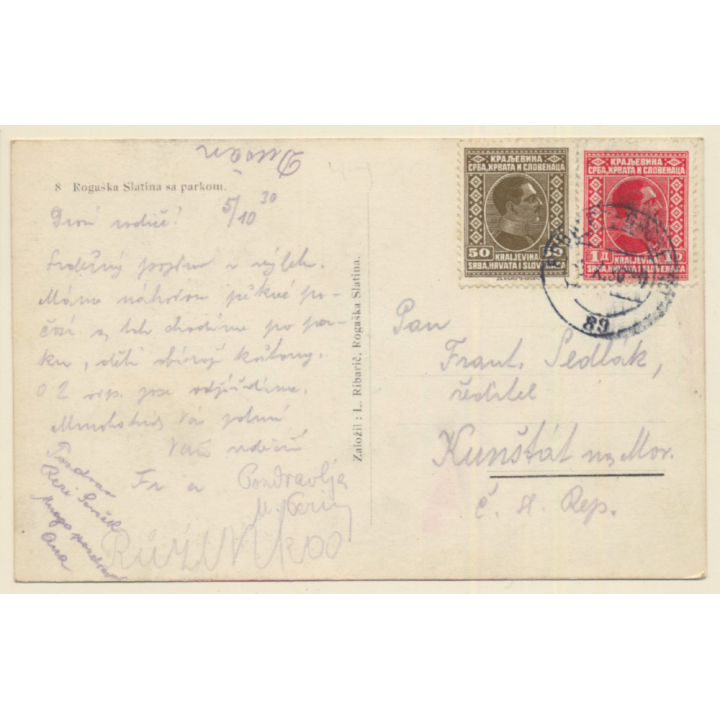 8 Rogaška Slatina sa parkom.
5/10 30
Drazí rodiče!
Srdečný pozdrav z výletu.
Máme náhodou pěkné po-
časí a tak chodíme po par-
ku, děti sbírají kaštany.
O 2 odp. zas odjíždíme.
Vás
Vaši vděční
Fr a
Pozdravlja
Pozdrav
Mnogo pozdrava
Ana
Založil: L. Ribarič, Rogaška Slatina.
КРАЉЕВИНА
СРБА, ХРВАТА И СЛОВЕНАЦА
50
KRALJEVINA
SRBA, HRVATA I SLOV
КРАЉЕВИНА
СРБА, ХРВАТА И СЛОВЕНАЦА
1 Д
KRALJEVINA
HRVATA I SLOVENACA
89
Pan
Frant. Sedlák,
ředitel
Kunštát na Mor.
Č. sl. Rep.